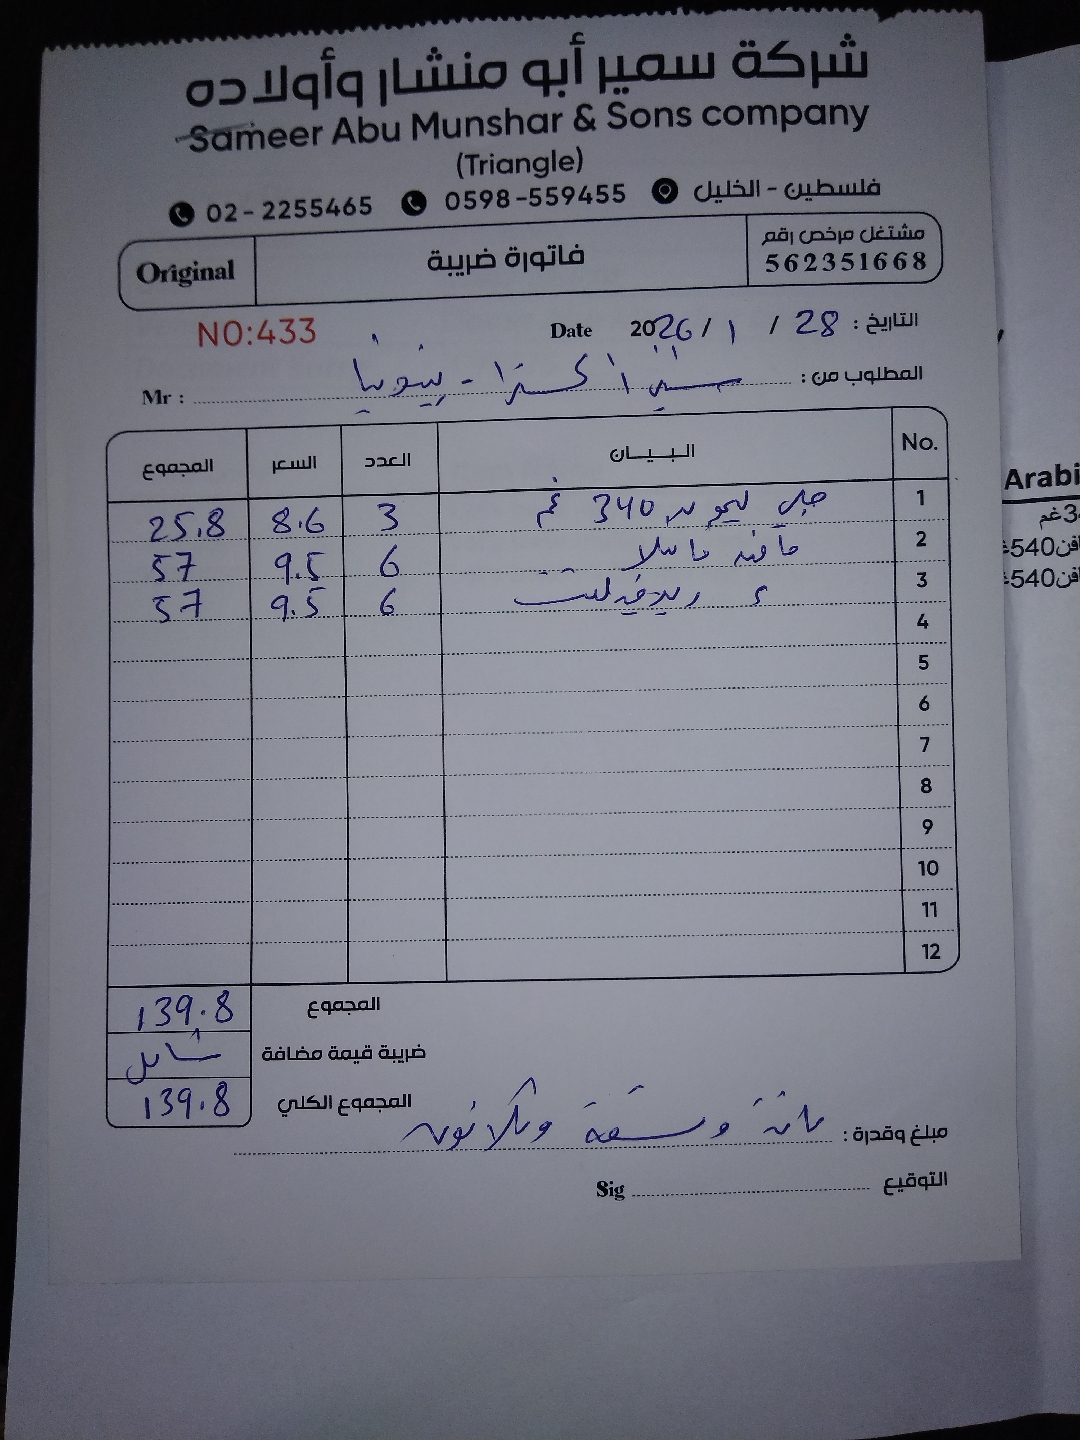 شركة سمير أبو منشار وأولاده
Sameer Abu Munshar & Sons company
(Triangle)
02-2255465 0598-559455 فلسطين - الخليل
Original فاتورة ضريبة مشتغل مرخص رقم 562351668
NO:433 Date 2026 / 1 / 28 التاريخ :
Mr : المطلوب من :
No. البيان العدد السعر المجموع
1 جلي ليمون 340 غم 3 8.6 25.8
2 6 9.5 57
3 6 9.5 57
4
5
6
7
8
9
10
11
12
المجموع 139.8
ضريبة قيمة مضافة شامل
المجموع الكلي 139.8
مبلغ وقدرة : مائة وتسعة وثلاثون
التوقيع Sig
Arabi